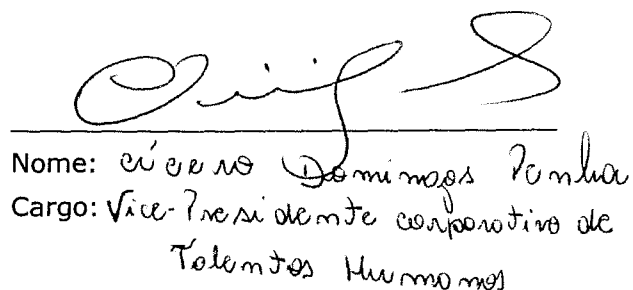 Nome: Cícero Domingos Penha
Cargo: Vice-Presidente corporativo de
Talentos Humanos